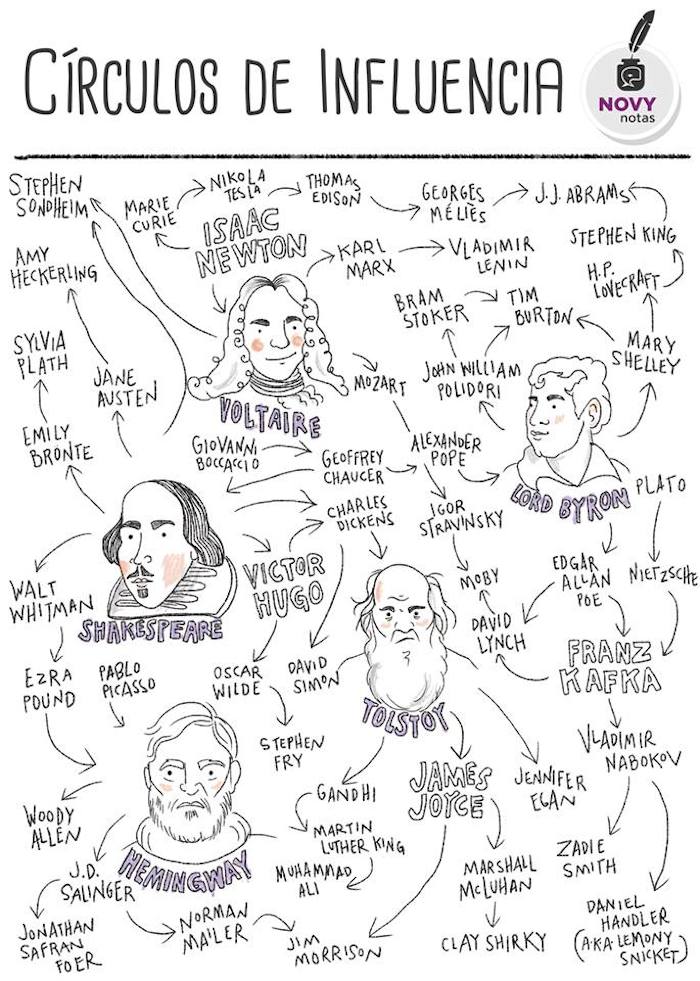 CÍRCULOS DE INFLUENCIA
NOVY
notas
STEPHEN
SONDHEIM
MARIE
CURIE
NIKOLA
TESLA
THOMAS
EDISON
GEORGES
MÉLIÈS
J.J. ABRAMS
ISAAC
NEWTON
STEPHEN KING
AMY
HECKERLING
KARL
MARX
VLADIMIR
LENIN
H.P.
LOVECRAFT
BRAM
STOKER
TIM
BURTON
SYLVIA
PLATH
JANE
AUSTEN
MOZART
JOHN WILLIAM
POLIDORI
MARY
SHELLEY
VOLTAIRE
EMILY
BRONTE
GIOVANNI
BOCCACCIO
GEOFFREY
CHAUCER
ALEXANDER
POPE
LORD BYRON
PLATO
CHARLES
DICKENS
IGOR
STRAVINSKY
WALT
WHITMAN
SHAKESPEARE
VICTOR
HUGO
MOBY
EDGAR
ALLAN
POE
NIETZSCHE
DAVID
LYNCH
FRANZ
KAFKA
EZRA
POUND
PABLO
PICASSO
OSCAR
WILDE
DAVID
SIMON
TOLSTOY
STEPHEN
FRY
VLADIMIR
NABOKOV
GANDHI
JAMES
JOYCE
JENNIFER
EGAN
WOODY
ALLEN
MARTIN
LUTHER KING
HEMINGWAY
MUHAMMAD
ALI
ZADIE
SMITH
J.D.
SALINGER
MARSHALL
McLUHAN
JONATHAN
SAFRAN
FOER
NORMAN
MAILER
JIM
MORRISON
CLAY SHIRKY
DANIEL
HANDLER
(A.K.A. LEMONY
SNICKET)